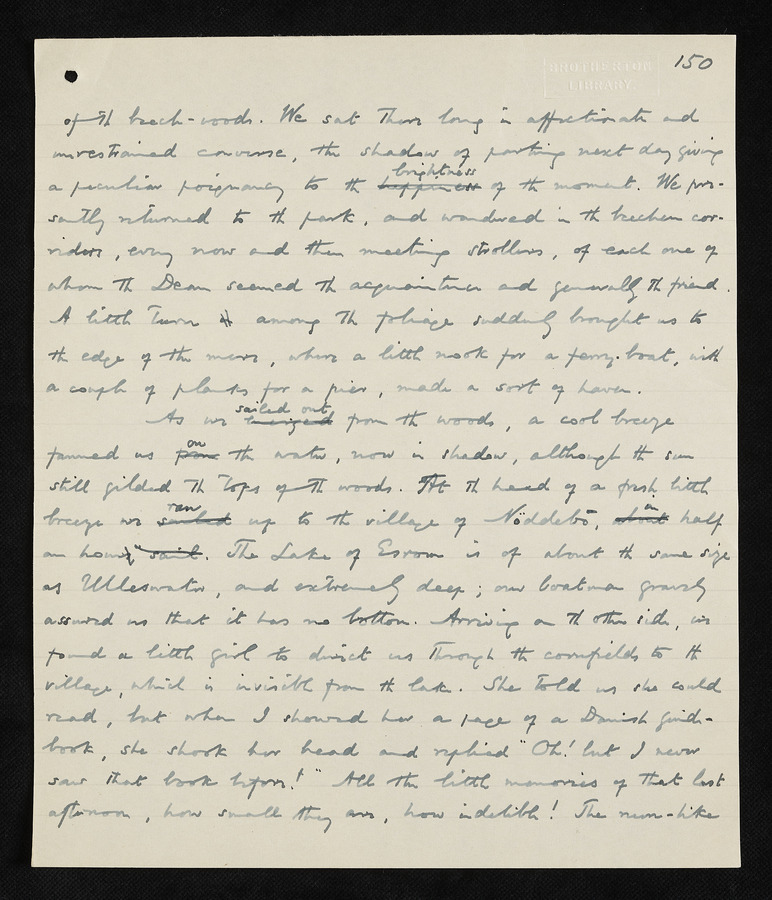 BROTHERTON LIBRARY.
150
of the beech-woods. We sat there long in affectionate and
unrestrained converse, the shadow of parting next day giving
a peculiar poignancy to the happiness brightness of the moment. We pre-
sently returned to the park, and wandered in the beechen cor-
ridors, every now and then meeting strollers, of each one of
whom the Dean seemed the acquaintance and generally the friend.
A little turn among the foliage suddenly brought us to
the edge of the mere, where a little nook for a ferry-boat, with
a couple of planks for a pier, made a sort of haven.
As we emerged sailed out from the woods, a cool breeze
fanned us from on the water, now in shadow, although the sun
still gilded the tops of the woods. At the head of a fresh little
breeze we sailed ran up to the village of Nöddebö, about in half
an hour's sail. The Lake of Esrom is of about the same size
as Ulleswater, and extremely deep; our boatman gravely
assured us that it has no bottom. Arriving on the other side, we
found a little girl to direct us through the cornfields to the
village, which is invisible from the lake. She told us she could
read, but when I showed her a page of a Danish guide-
book, she shook her head and replied "Oh! but I never
saw that book before!" All the little memories of that last
afternoon, how small they are, how indelible! The nun-like